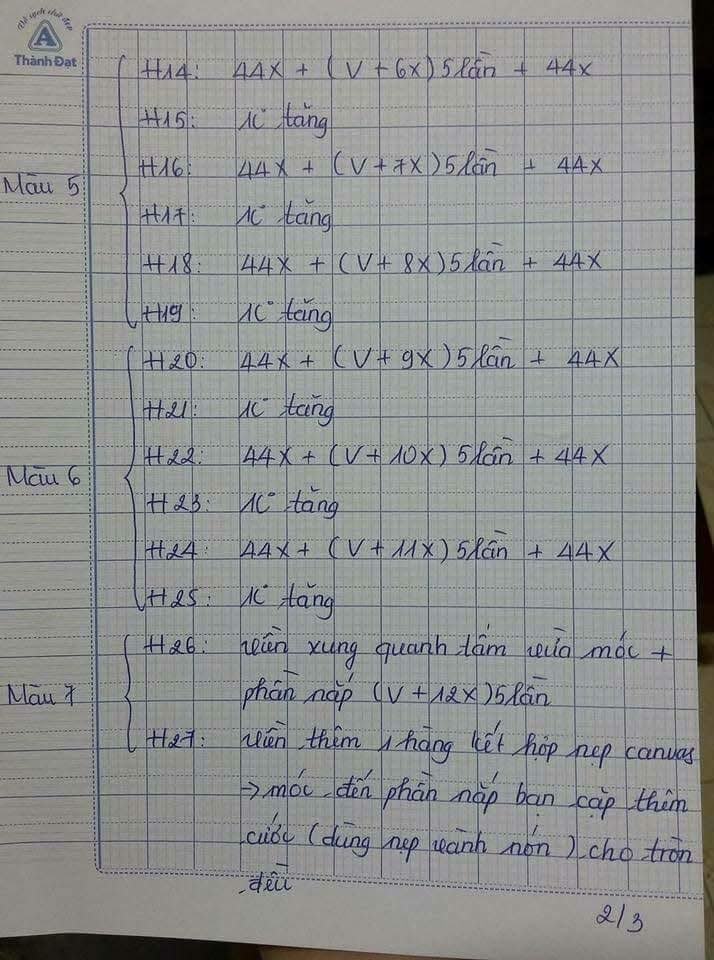 Vở sạch chữ đẹp
A
Thành Đạt
H14: 44X + (V + 6X) 5 lần + 44X
H15: 1C° tăng
Màu 5 H16: 44X + (V + 7X) 5 lần + 44X
H17: 1C° tăng
H18: 44X + (V + 8X) 5 lần + 44X
H19: 1C° tăng
H20: 44X + (V + 9X) 5 lần + 44X
H21: 1C° tăng
Màu 6 H22: 44X + (V + 10X) 5 lần + 44X
H23: 1C° tăng
H24: 44X + (V + 11X) 5 lần + 44X
H25: 1C° tăng
H26: viền xung quanh tấm vừa móc +
Màu 7 phần nắp (V + 12X) 5 lần
H27: viền thêm 1 hàng kết hợp nẹp canvas
→ móc đến phần nắp bạn cặp thêm
cước (dùng nẹp vành nón) cho tròn
đều
2/3